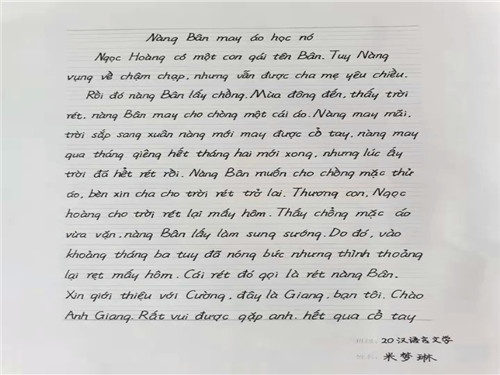 Nàng Bân may áo học nó
Ngọc Hoàng có một con gái tên Bân. Tuy Nàng
vụng về chậm chạp, nhưng vẫn được cha mẹ yêu chiều.
Rồi đó nàng Bân lấy chồng. Mùa đông đến, thấy trời
rét, nàng Bân may cho chồng một cái áo. Nàng may mãi,
trời sắp sang xuân nàng mới may được cổ tay, nàng may
qua tháng giêng hết tháng hai mới xong, nhưng lúc ấy
trời đã hết rét rồi. Nàng Bân muốn cho chồng mặc thử
áo, bèn xin cha cho trời rét trở lai. Thương con, Ngọc
hoàng cho trời rét lại mấy hôm. Thấy chồng mặc áo
vừa vặn, nàng Bân lấy làm sung sướng. Do đó, vào
khoảng tháng ba tuy đã nóng bức nhưng thỉnh thoảng
lại rẹt mấy hôm. Cái rét đó gọi là rét nàng Bân.
Xin giới thiệu với Cường, đây là Giang, bạn tôi. Chào
Anh Giang. Rất vui được gặp anh. hết qua cổ tay
20汉语言文学
米梦琳